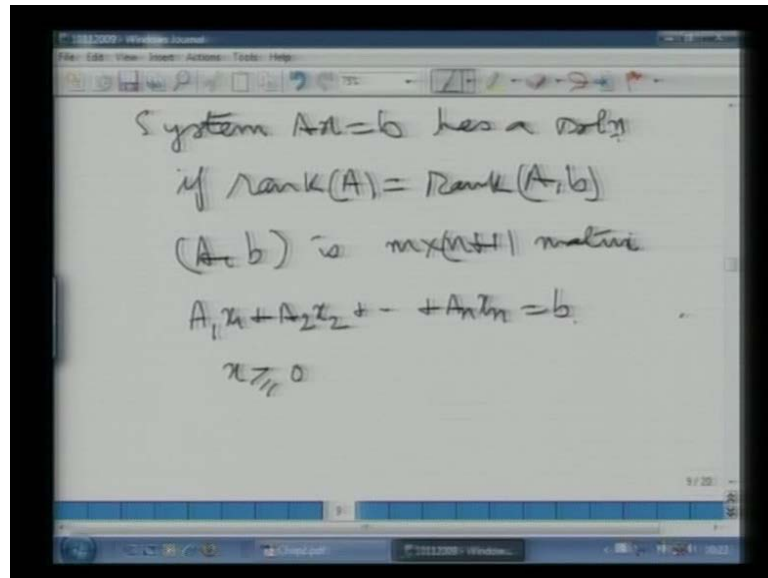 10112009 - Windows Journal
File Edit View Insert Actions Tools Help
System Ax = b has a soln
if rank(A) = Rank(A, b)
(A, b) is m×(n+1) matrix
A₁x₁ + A₂x₂ + - + Aₙxₙ = b.
x ≥ 0
9 / 20
9
Chap2.pdf
10112009 - Window...
10:22